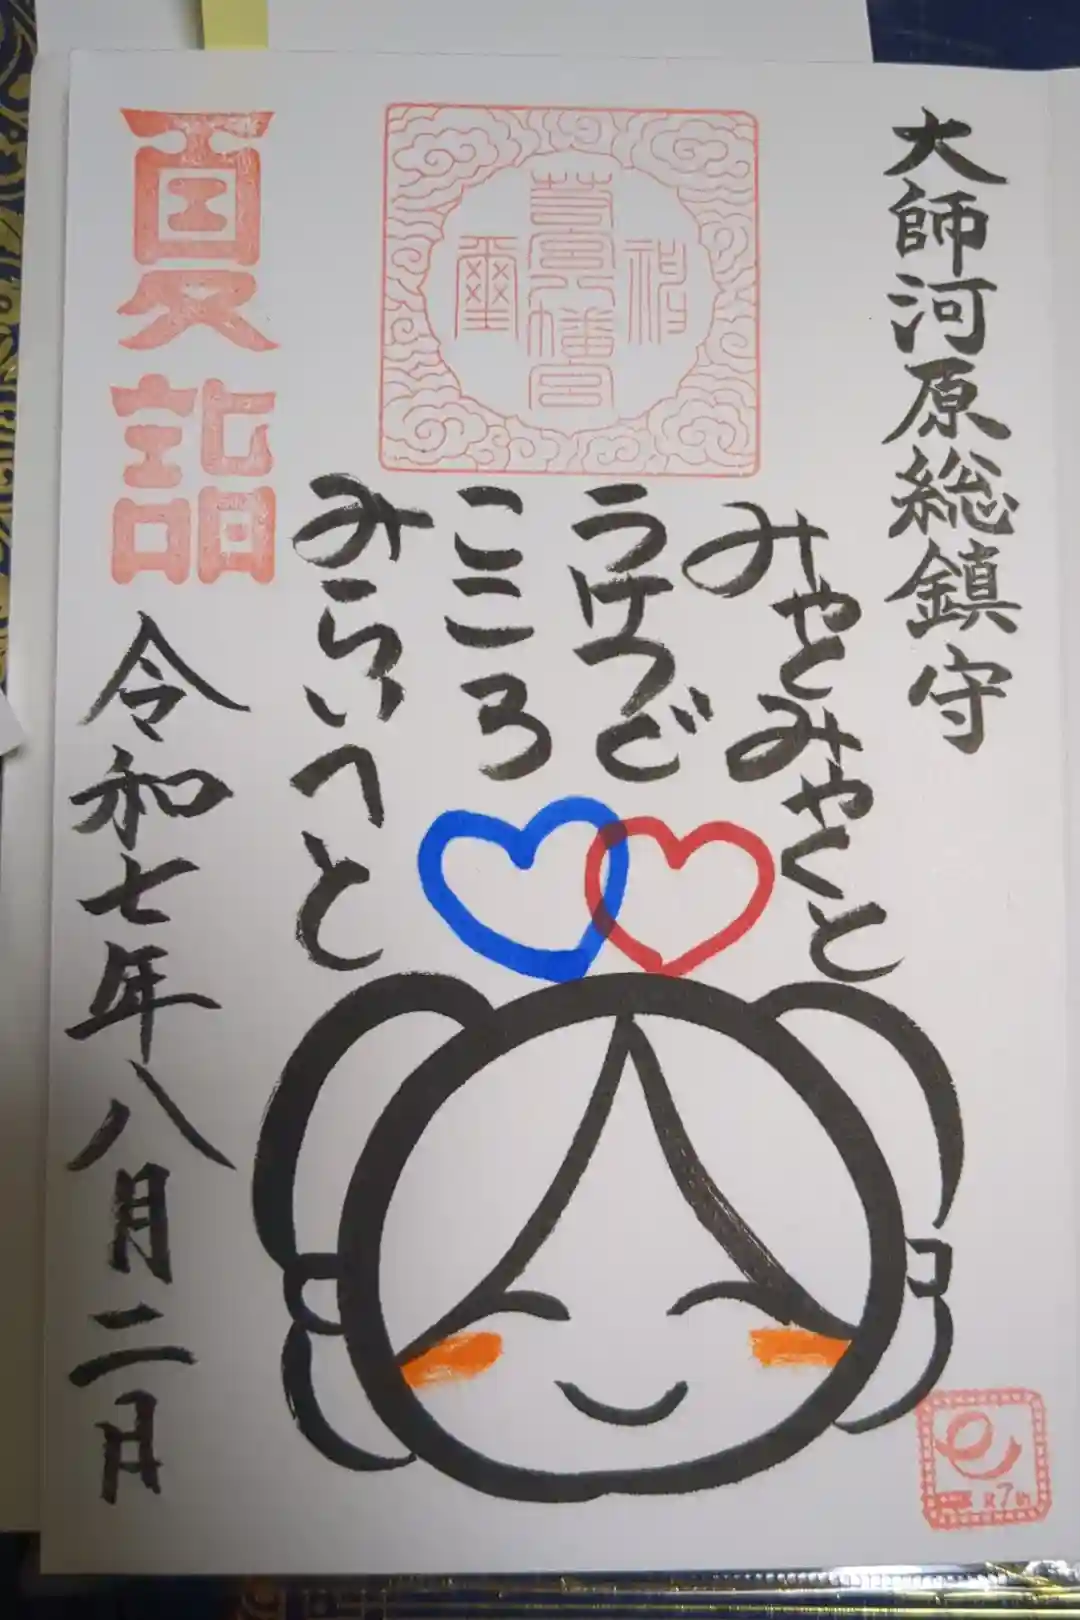 大師河原総鎮守
みやとみやくと
うけつぐ
こころ
みらいへと
夏詣
令和七年八月二日